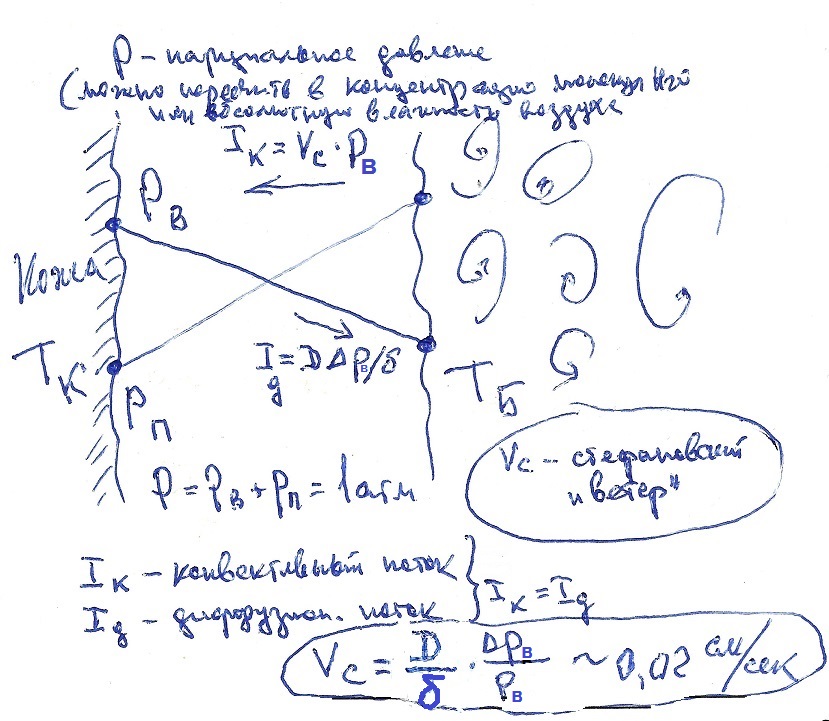 P – парциальное давление
(можно пересчитать в концентрацию молекул H₂O
или абсолютную влажность воздуха
I_к = V_c · P_В
P_В
Кожа
I_д = D Δp_В/δ
T_К
P_П
T_Б
V_c – стефановский
"ветер"
P = P_В + P_П = 1 атм
I_к – конвективный поток
I_д – диффузион. поток
I_к = I_д
V_c = D/δ · ΔP_В/P_В ~ 0,02 см/сек